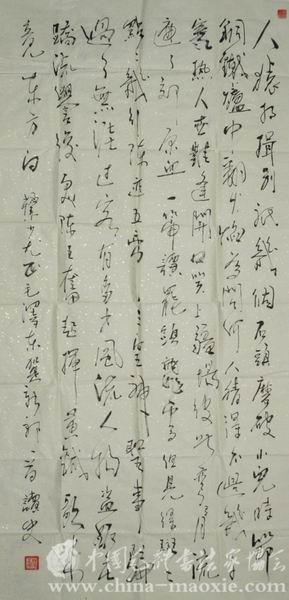 人猿相揖别只几个石头磨破小儿时节
铜铁炉中翻火焰为问何人猜得不过几千
寒热人世难逢开口笑上疆场彼此弯弓月流
遍了郊原血一篇读罢头飞雪但见得斑斑
点点几行陈迹五帝三皇神圣事骗
了无涯过客有多少风流人物盗跖庄
蹻流誉后更陈王奋起挥黄钺歌未
竟东方白 毛泽东贺新郎一首读史
www.china-maoxie.com